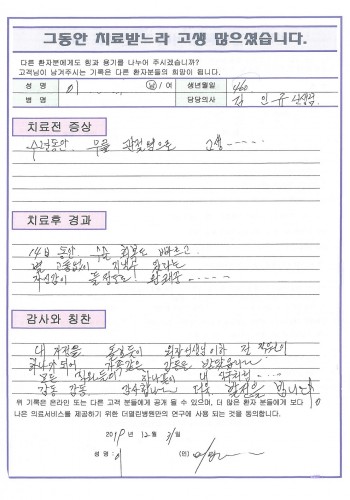 그동안 치료받느라 고생 많으셨습니다.
다른 환자분에게도 힘과 용기를 나누어 주시겠습니까?
고객님이 남겨주시는 기록은 다른 환자분들의 희망이 됩니다.
성 명 이 남 / 여 생년월일 460
병 명 담당의사 김 인 규 선생님
치료전 증상
수년동안 무릎 관절염으로 고생 - - - -
치료후 경과
14日 동안 수술 회복도 빠르고
별 고통없이 지냈구 왔다는
자신감이 들 정도로!
감사와 칭찬
내 가족을 돌보듯이 원장선생님 이하 전 직원이
하나가 되어 가족같은 감동을 받았읍니다
모든 직원들이 하나같이 내 가족처럼 - - -
감동 감동. 감사합니다 더욱 발전을 빕니다!
위 기록은 온라인 또는 다른 고객 분들에게 공개 될 수 있으며, 더 많은 환자 분들에게 보다
나은 의료서비스를 제공하기 위한 더열린병원만의 연구에 사용 되는 것을 동의합니다.
2019 년 12 월 31 일
성 명 : 이